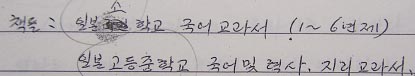 책들 : 일본소학교 국어 교과서 (1~6년제)
일본고등중학교 국어및 력사, 지리교과서.